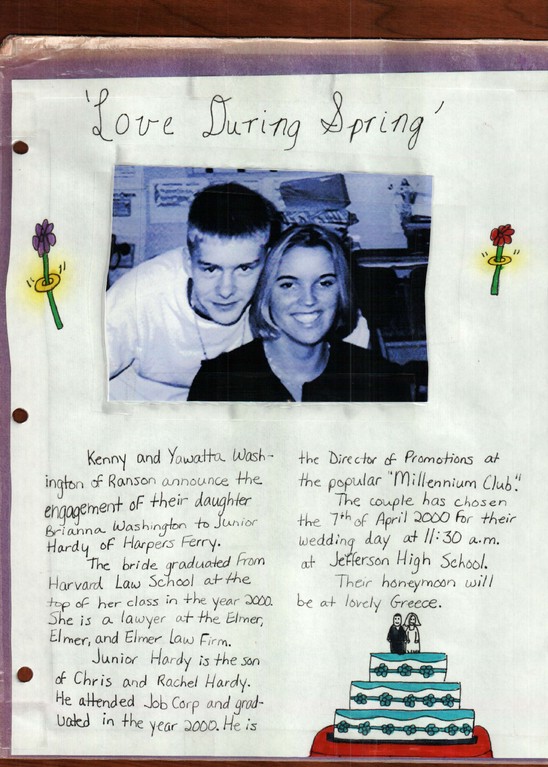 'Love During Spring'
Kenny and Yawatta Wash-
ington of Ranson announce the
engagement of their daughter
Brianna Washington to Junior
Hardy of Harpers Ferry.
The bride graduated from
Harvard Law School at the
top of her class in the year 2000.
She is a lawyer at the Elmer,
Elmer, and Elmer Law Firm.
Junior Hardy is the son
of Chris and Rachel Hardy.
He attended Job Corp and grad-
uated in the year 2000. He is
the Director of Promotions at
the popular "Millennium Club."
The couple has chosen
the 7th of April 2000 for their
wedding day at 11:30 a.m.
at Jefferson High School.
Their honeymoon will
be at lovely Greece.